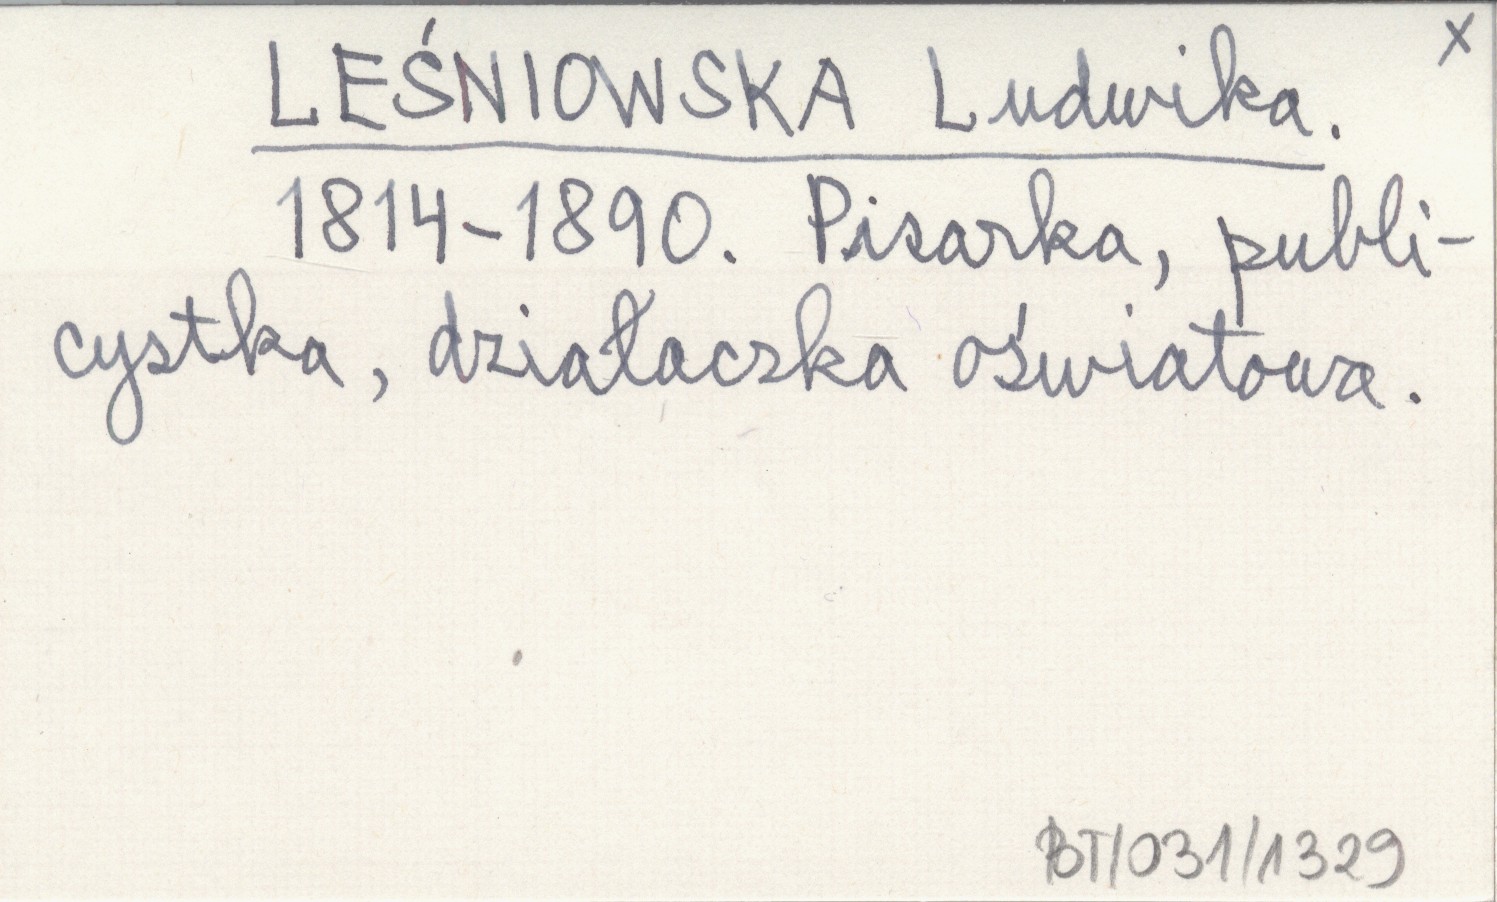 x
LEŚNIOWSKA Ludwika.
1814-1890. Pisarka, publi-
cystka, działaczka oświatowa.
BT/031/1329